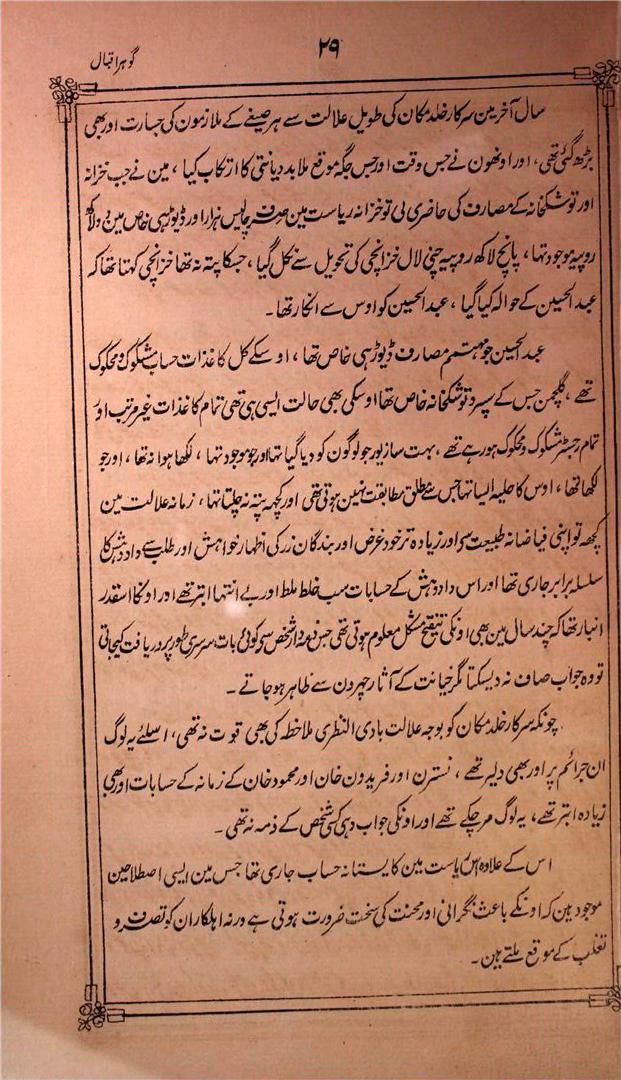 ۲۹
گوہر اقبال
سال آخر مین سرکار خلد مکان کی طویل علالت سے ہر صیغے کے ملازمون کی جسارت اور بھی
بڑھ گئی تھی، اور اونھون نے جس وقت اور جس جگہ موقع ملا بددیانتی کا ارتکاب کیا، مین نے جب خزانہ
اور توشکخانہ کے مصارف کی حاضری لی تو خزانہ ریاست مین صرف چالیس ہزار اور ڈیوڑہی خاص مین دو لاکھ
روپیہ موجود تہا، پانچ لاکھ روپیہ چنی لال خزانچی کی تحویل سے نکل گیا، جسکا پتہ نہ تھا خزانچی کہتا تھا کہ
عبد الحسین کے حوالہ کیا گیا، عبد الحسین کو اوس سے انکار تھا۔
عبد الحسین جو مہتمم مصارف ڈیوڑہی خاص تھا، اوسکے کل کاغذات حساب مشکوک و محکوک
تھے، گلچمن جس کے سپرد توشکخانہ خاص تھا اوسکی بھی حالت ایسی ہی تھی تمام کاغذات غیر مرتب اور
تمام رجسٹر مشکوک و محکوک ہو رہے تھے، بہت سا زیور جو لوگون کو دیا گیا تھا اور جو موجود تہا، لکھا ہوا نہ تھا، اور جو
لکھا تھا، اوس کا حلیہ ایسا تہا جس سے مطلق مطابقت نہین ہوتی تھی اور کچھ پتہ نہ چلتا تہا، زمانہ علالت مین
کچھ تو اپنی فیاضانہ طبیعت سے اور زیادہ تر خود غرض اور بندگان زر کی اظہار خواہش اور طلب سے داد و دہش کا
سلسلہ برابر جاری تھا اور اس داد و دہش کے حسابات سب خلط ملط اور بے انتہا ابتر تھے اور اونکا اسقدر
انبار تھا کہ چند سال مین بھی اونکی تنقیح مشکل معلوم ہوتی تھی جس ذمہ دار شخص سے کوئی بات سرسری طور پر دریافت کیجاتی
تو وہ جواب صاف نہ دیسکتا مگر خیانت کے آثار چہرون سے ظاہر ہو جاتے۔
چونکہ سرکار خلد مکان کو بوجہ علالت بادی النظری ملاحظہ کی بھی قوت نہ تھی، اسلئے یہ لوگ
ان جرائم پر اور بھی دلیر تھے، نسترن اور فریدون خان اور محمود خان کے زمانہ کے حسابات اور بھی
زیادہ ابتر تھے، یہ لوگ مر چکے تھے اور اونکی جواب دہی کسی شخص کے ذمہ نہ تھی۔
اس کے علاوہ اس ریاست مین کایستانہ حساب جاری تھا جس مین ایسی اصطلاحین
موجود ہین کہ اونکے باعث نگرانی اور محنت کی سخت ضرورت ہوتی ہے ورنہ اہلکاران کو تصرف و
تغلب کے موقع ملتے ہین۔